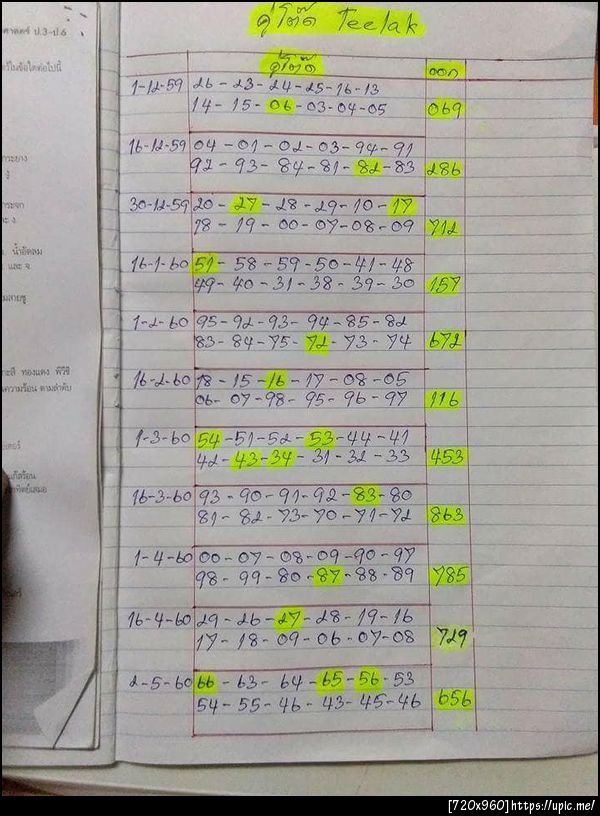 คู่โต๊ด Teelak
คู่โต๊ด ออก
1-12-59 26-23-24-25-16-13
14-15-06-03-04-05 069
16-12-59 04-01-02-03-94-91
92-93-84-81-82-83 286
30-12-59 20-27-28-29-10-17
18-19-00-07-08-09 712
16-1-60 51-58-59-50-41-48
49-40-31-38-39-30 157
1-2-60 95-92-93-94-85-82
83-84-75-72-73-74 672
16-2-60 18-15-16-17-08-05
06-07-98-95-96-97 116
1-3-60 54-51-52-53-44-41
42-43-34-31-32-33 453
16-3-60 93-90-91-92-83-80
81-82-73-70-71-72 863
1-4-60 00-07-08-09-90-97
98-99-80-87-88-89 785
16-4-60 29-26-27-28-19-16
17-18-09-06-07-08 729
2-5-60 66-63-64-65-56-53
54-55-46-43-45-46 656
าศาสตร์ ป.3-ป.6
ร์ในข้อใดต่อไปนี้
กระจก
น้ำอัดลม
และ จ.
กะสี ทองแดง พีวีซี
ความร้อน ตามลำดับ
[720x960] https://upic.me/